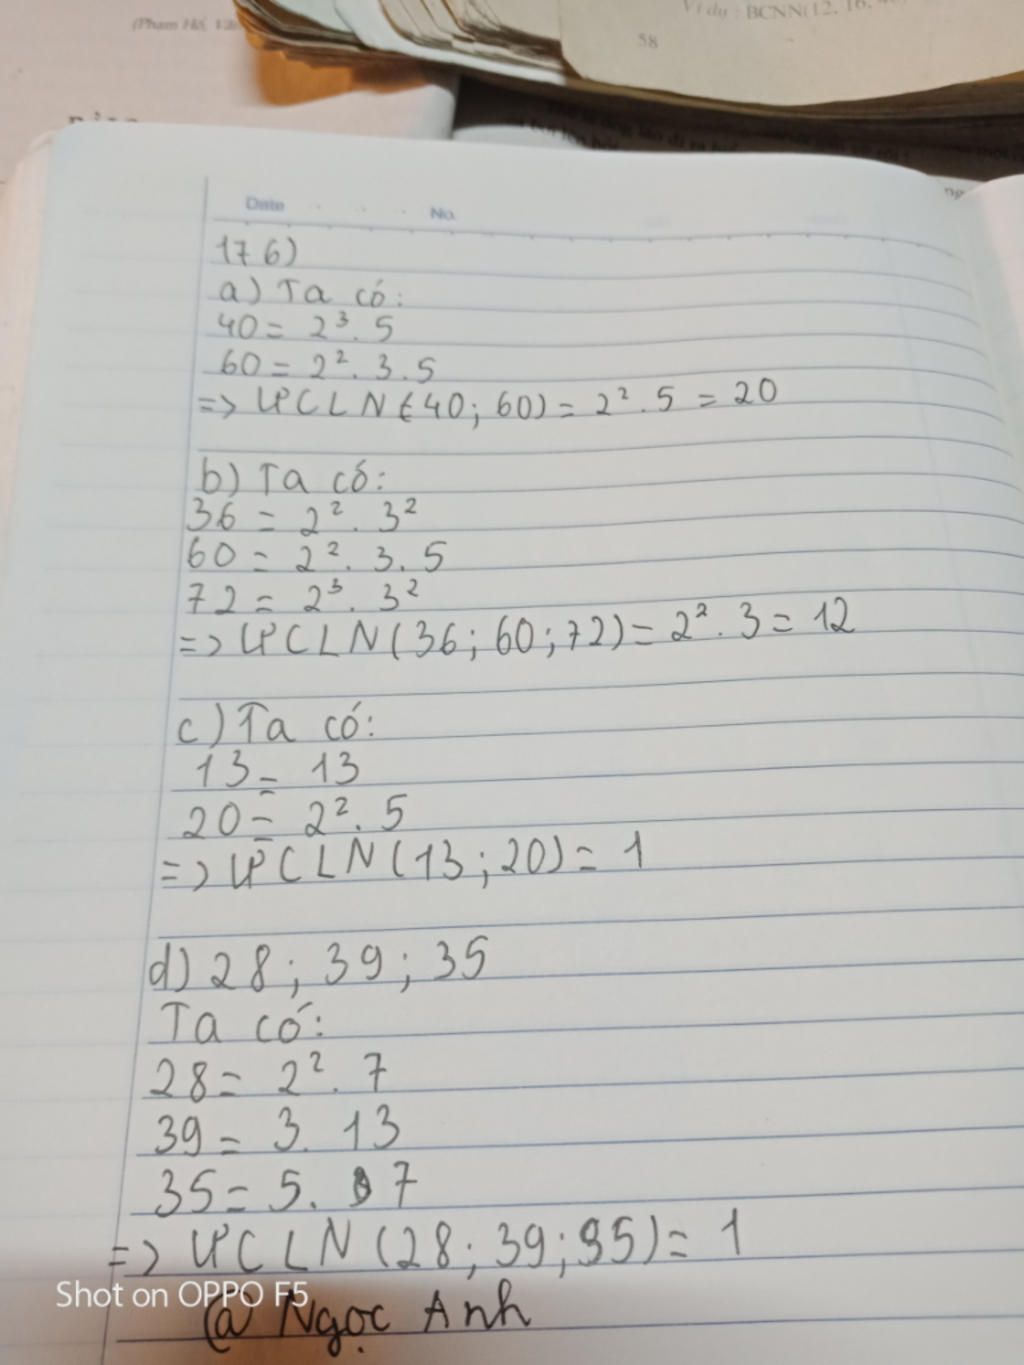 (Phạm Hổ,
Ví dụ : BCNN(12, 16,
58
Date
No.
176)
a) Ta có:
40 = 2³. 5
60 = 2². 3. 5
=> ƯCLN (40; 60) = 2². 5 = 20
b) Ta có:
36 = 2². 3²
60 = 2². 3. 5
72 = 2³. 3²
=> ƯCLN (36; 60; 72) = 2². 3 = 12
c) Ta có:
13 = 13
20 = 2². 5
=> ƯCLN (13; 20) = 1
d) 28; 39; 35
Ta có:
28 = 2². 7
39 = 3. 13
35 = 5. 7
=> ƯCLN (28; 39; 35) = 1
Shot on OPPO F5
@ Ngọc Anh